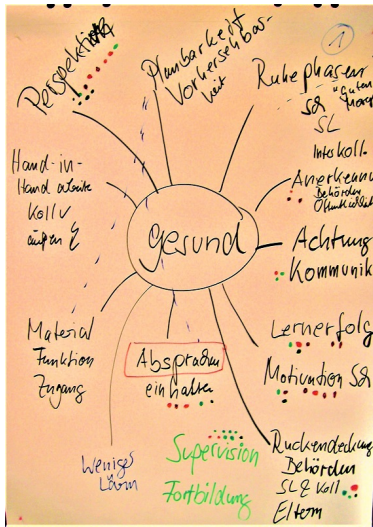 1
Perspektiven
Planbarkeit
Vorhersehbar-
keit
Ruhephasen
SL
Interkoll.
Hand-in-
Hand arbeite
Koll v
außen
Anerkennu
Behörden
gesund
Achtung
Kommunik
Material
Funktion
Zugang
Absprachen
einhalten
Lernerfolg
Motivation
Weniger
Lärm
Supervision
Fortbildung
Rückendeckung
Behörden
SL & Koll
Eltern